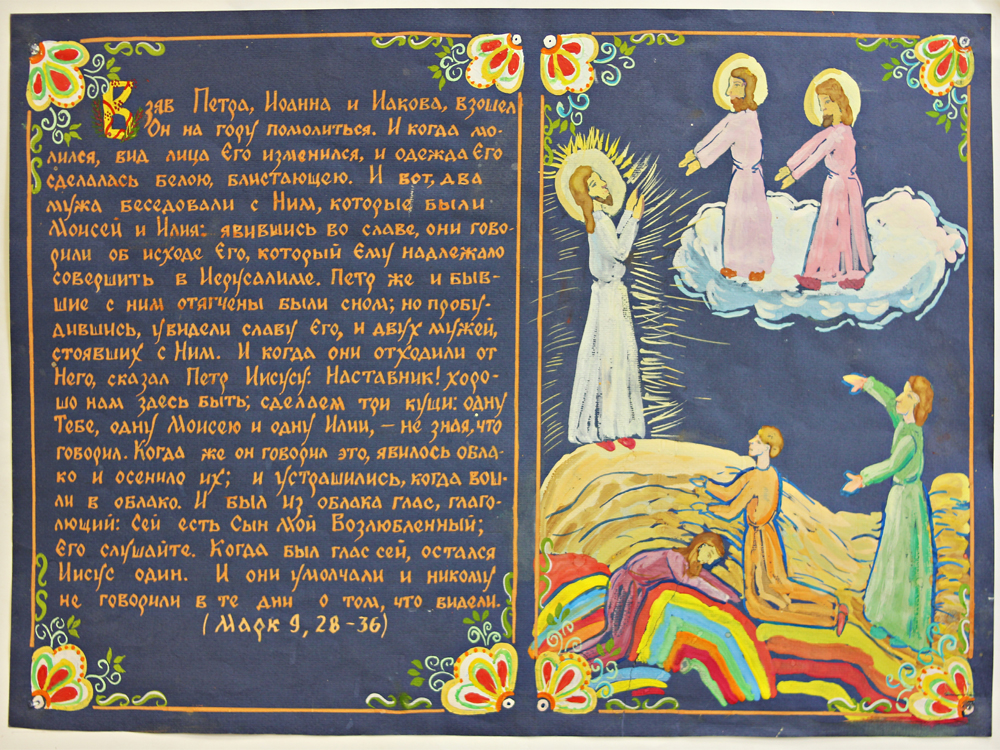 Взяв Петра, Иоанна и Иакова, взошел
Он на гору помолиться. И когда мо-
лился, вид лица Его изменился, и одежда Его
сделалась белою, блистающею. И вот, два
мужа беседовали с Ним, которые были
Моисей и Илия: явившись во славе, они гово-
рили об исходе Его, который Ему надлежало
совершить в Иерусалиме. Петр же и быв-
шие с ним отягчены были сном; но пробу-
дившись, увидели славу Его, и двух мужей,
стоявших с Ним. И когда они отходили от
Него, сказал Петр Иисусу: Наставник! хоро-
шо нам здесь быть; сделаем три кущи: одну
Тебе, одну Моисею и одну Илии, – не зная, что
говорил. Когда же он говорил это, явилось обла-
ко и осенило их; и устрашились, когда вош-
ли в облако. И был из облака глас, глаго-
лющий: Сей есть Сын Мой Возлюбленный;
Его слушайте. Когда был глас сей, остался
Иисус один. И они умолчали и никому
не говорили в те дни о том, что видели.
(Марк 9, 28-36)